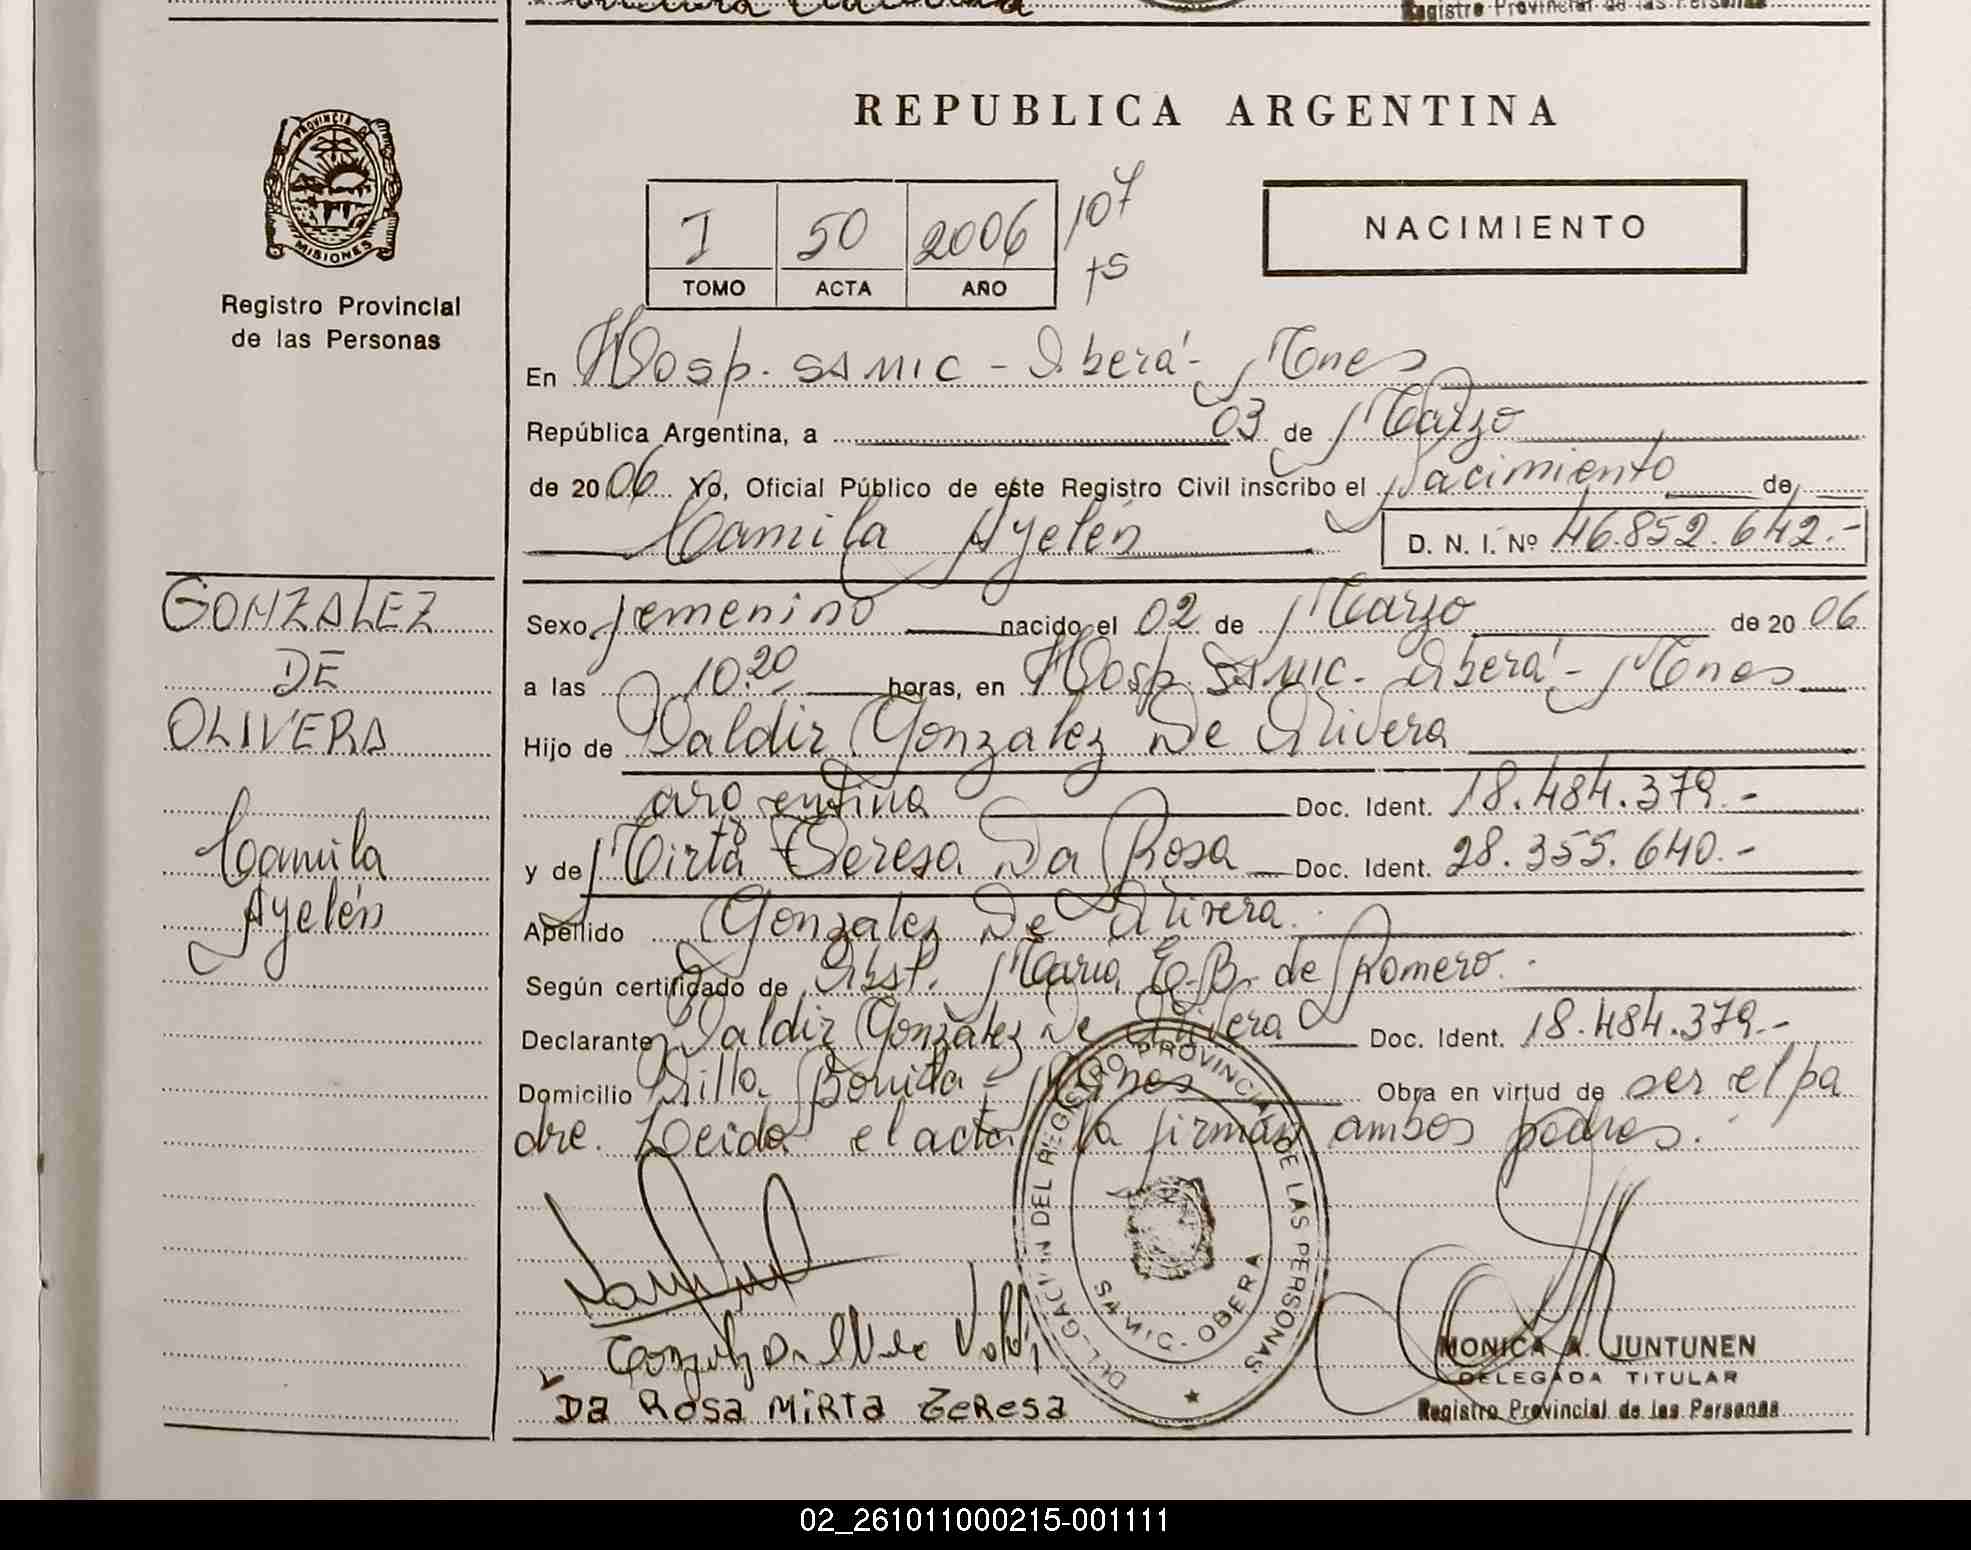 Registro Provincial de las Personas
PROVINCIA DE
MISIONES
Registro Provincial
de las Personas
REPUBLICA ARGENTINA
I 50 2006 107
TOMO ACTA AÑO ts
NACIMIENTO
En Hosp. SAMIC - Oberá - Mnes
República Argentina, a 03 de Marzo
de 2006 Yo, Oficial Público de este Registro Civil inscribo el Nacimiento de
Camila Ayelén D. N. I. Nº 46.852.642.-
Sexo femenino nacido el 02 de Marzo de 2006
a las 10.20 horas, en Hosp. SAMIC - Oberá - Mnes
Hijo de Valdir Gonzalez De Olivera
argentina Doc. Ident. 18.484.379.-
y de Mirta Teresa Da Rosa Doc. Ident. 28.355.640.-
Apellido Gonzalez De Olivera.
Según certificado de Obst. Maria E.B. de Romero.
Declarante Valdir Gonzalez De Olivera Doc. Ident. 18.484.379.-
Domicilio Villa Bonita - Mnes Obra en virtud de ser el pa
dre. Leida el acta la firman ambos padres.
GONZALEZ
DE
OLIVERA
Camila
Ayelén
DELEGACION DEL REGISTRO PROVINCIAL DE LAS PERSONAS
SAMIC. OBERA
DA ROSA MIRTA TERESA
MONICA A. JUNTUNEN
DELEGADA TITULAR
Registro Provincial de las Personas
02_261011000215-001111